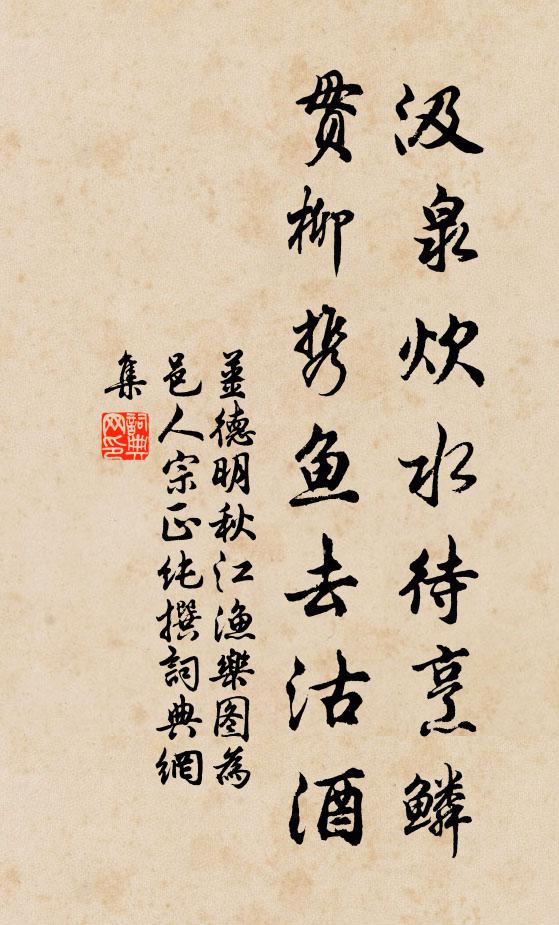 汲泉炊水待烹鳞
贯柳携鱼去沽酒
姜德明秋江渔樂图為
邑人宗正纯撰詞典網
集
詞典网印